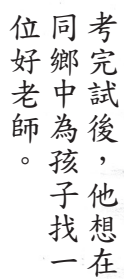 考完試後，他想在
同鄉中為孩子找一
位好老師。